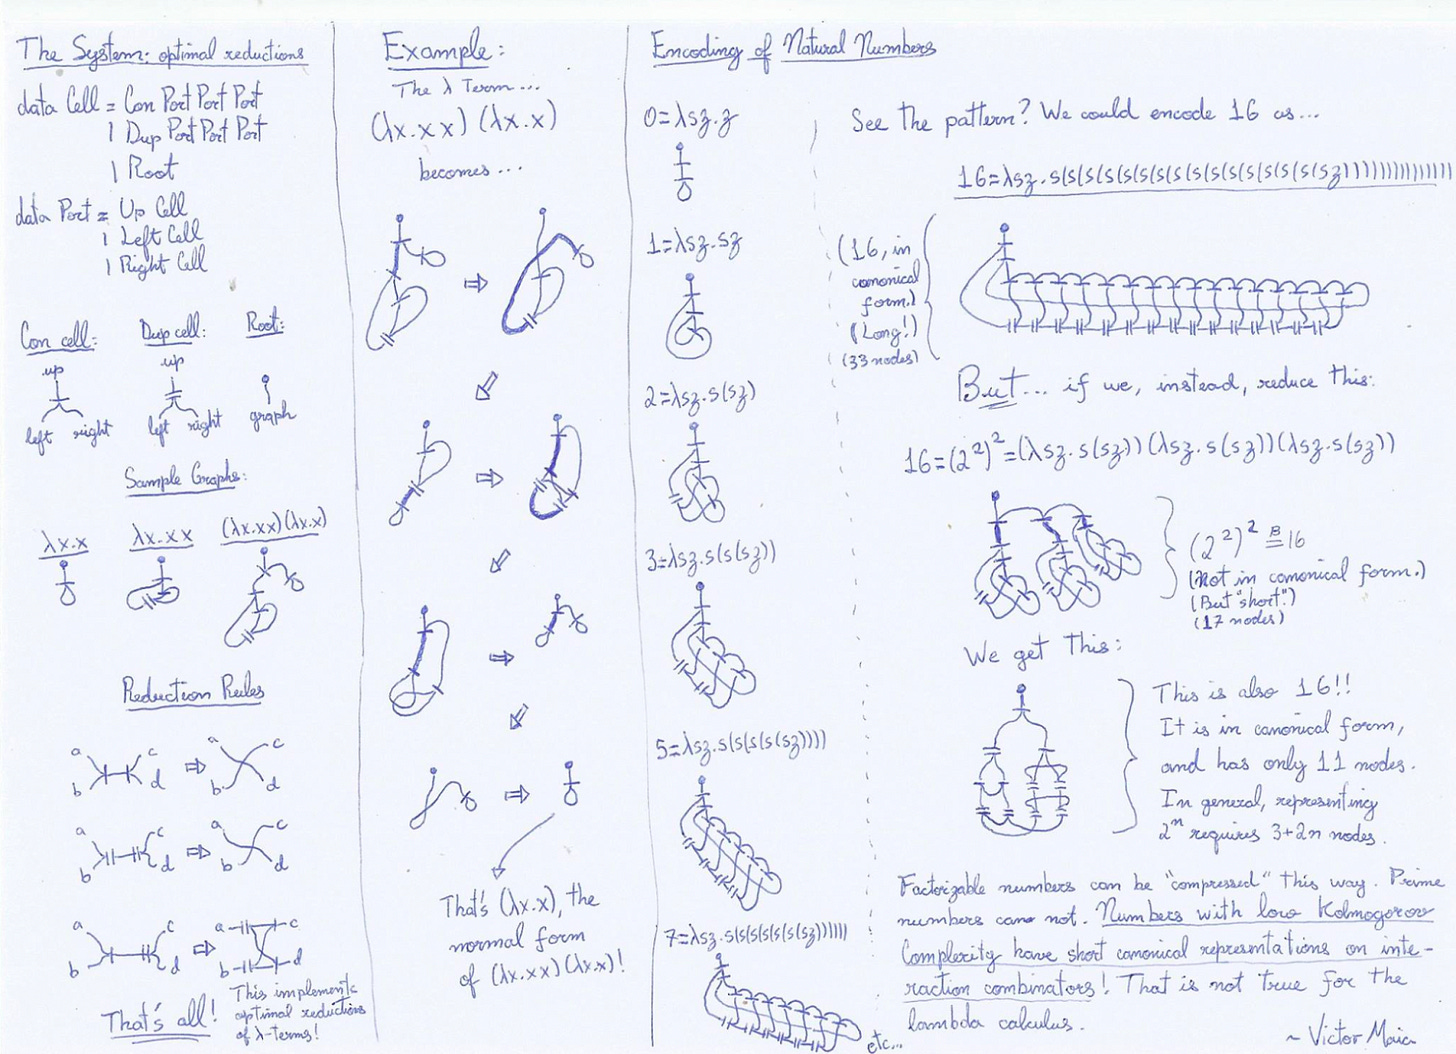 The System: optimal reductions
data Cell = Con Port Port Port
| Dup Port Port Port
| Root
data Port = Up Cell
| Left Cell
| Right Cell
Con cell:
up
left right
Dup cell:
up
left right
Root:
graph
Sample Graphs:
λx.x
λx.xx
(λx.xx)(λx.x)
Reduction Rules
a c
b d
⇒
a c
b d
a c
b d
⇒
a c
b d
a c
b d
⇒
a c
b d
That's all!
This implements
optimal reductions
of λ-terms!
Example:
The λ Term...
(λx.xx)(λx.x)
becomes...
That's (λx.x), the
normal form
of (λx.xx)(λx.x)!
Encoding of Natural Numbers
0=λsz.z
1=λsz.sz
2=λsz.s(sz)
3=λsz.s(s(sz))
5=λsz.s(s(s(s(sz))))
7=λsz.s(s(s(s(s(s(sz))))))
etc...
See the pattern? We could encode 16 as...
16=λsz.s(s(s(s(s(s(s(s(s(s(s(s(s(s(s(sz)))))))))))))))
(16, in
canonical
form.)
(Long!)
(33 nodes)
But... if we, instead, reduce this:
16=(2²)²=(λsz.s(sz))(λsz.s(sz))(λsz.s(sz))
(2²)² ≝ 16
(Not in canonical form.)
(But "short".)
(17 nodes)
We get this:
This is also 16!!
It is in canonical form,
and has only 11 nodes.
In general, representing
2ⁿ requires 3+2n nodes.
Factorizable numbers can be "compressed" this way. Prime
numbers can not. Numbers with low Kolmogorov
Complexity have short canonical representations on inte-
raction combinators! That is not true for the
lambda calculus.
~ Victor Maia